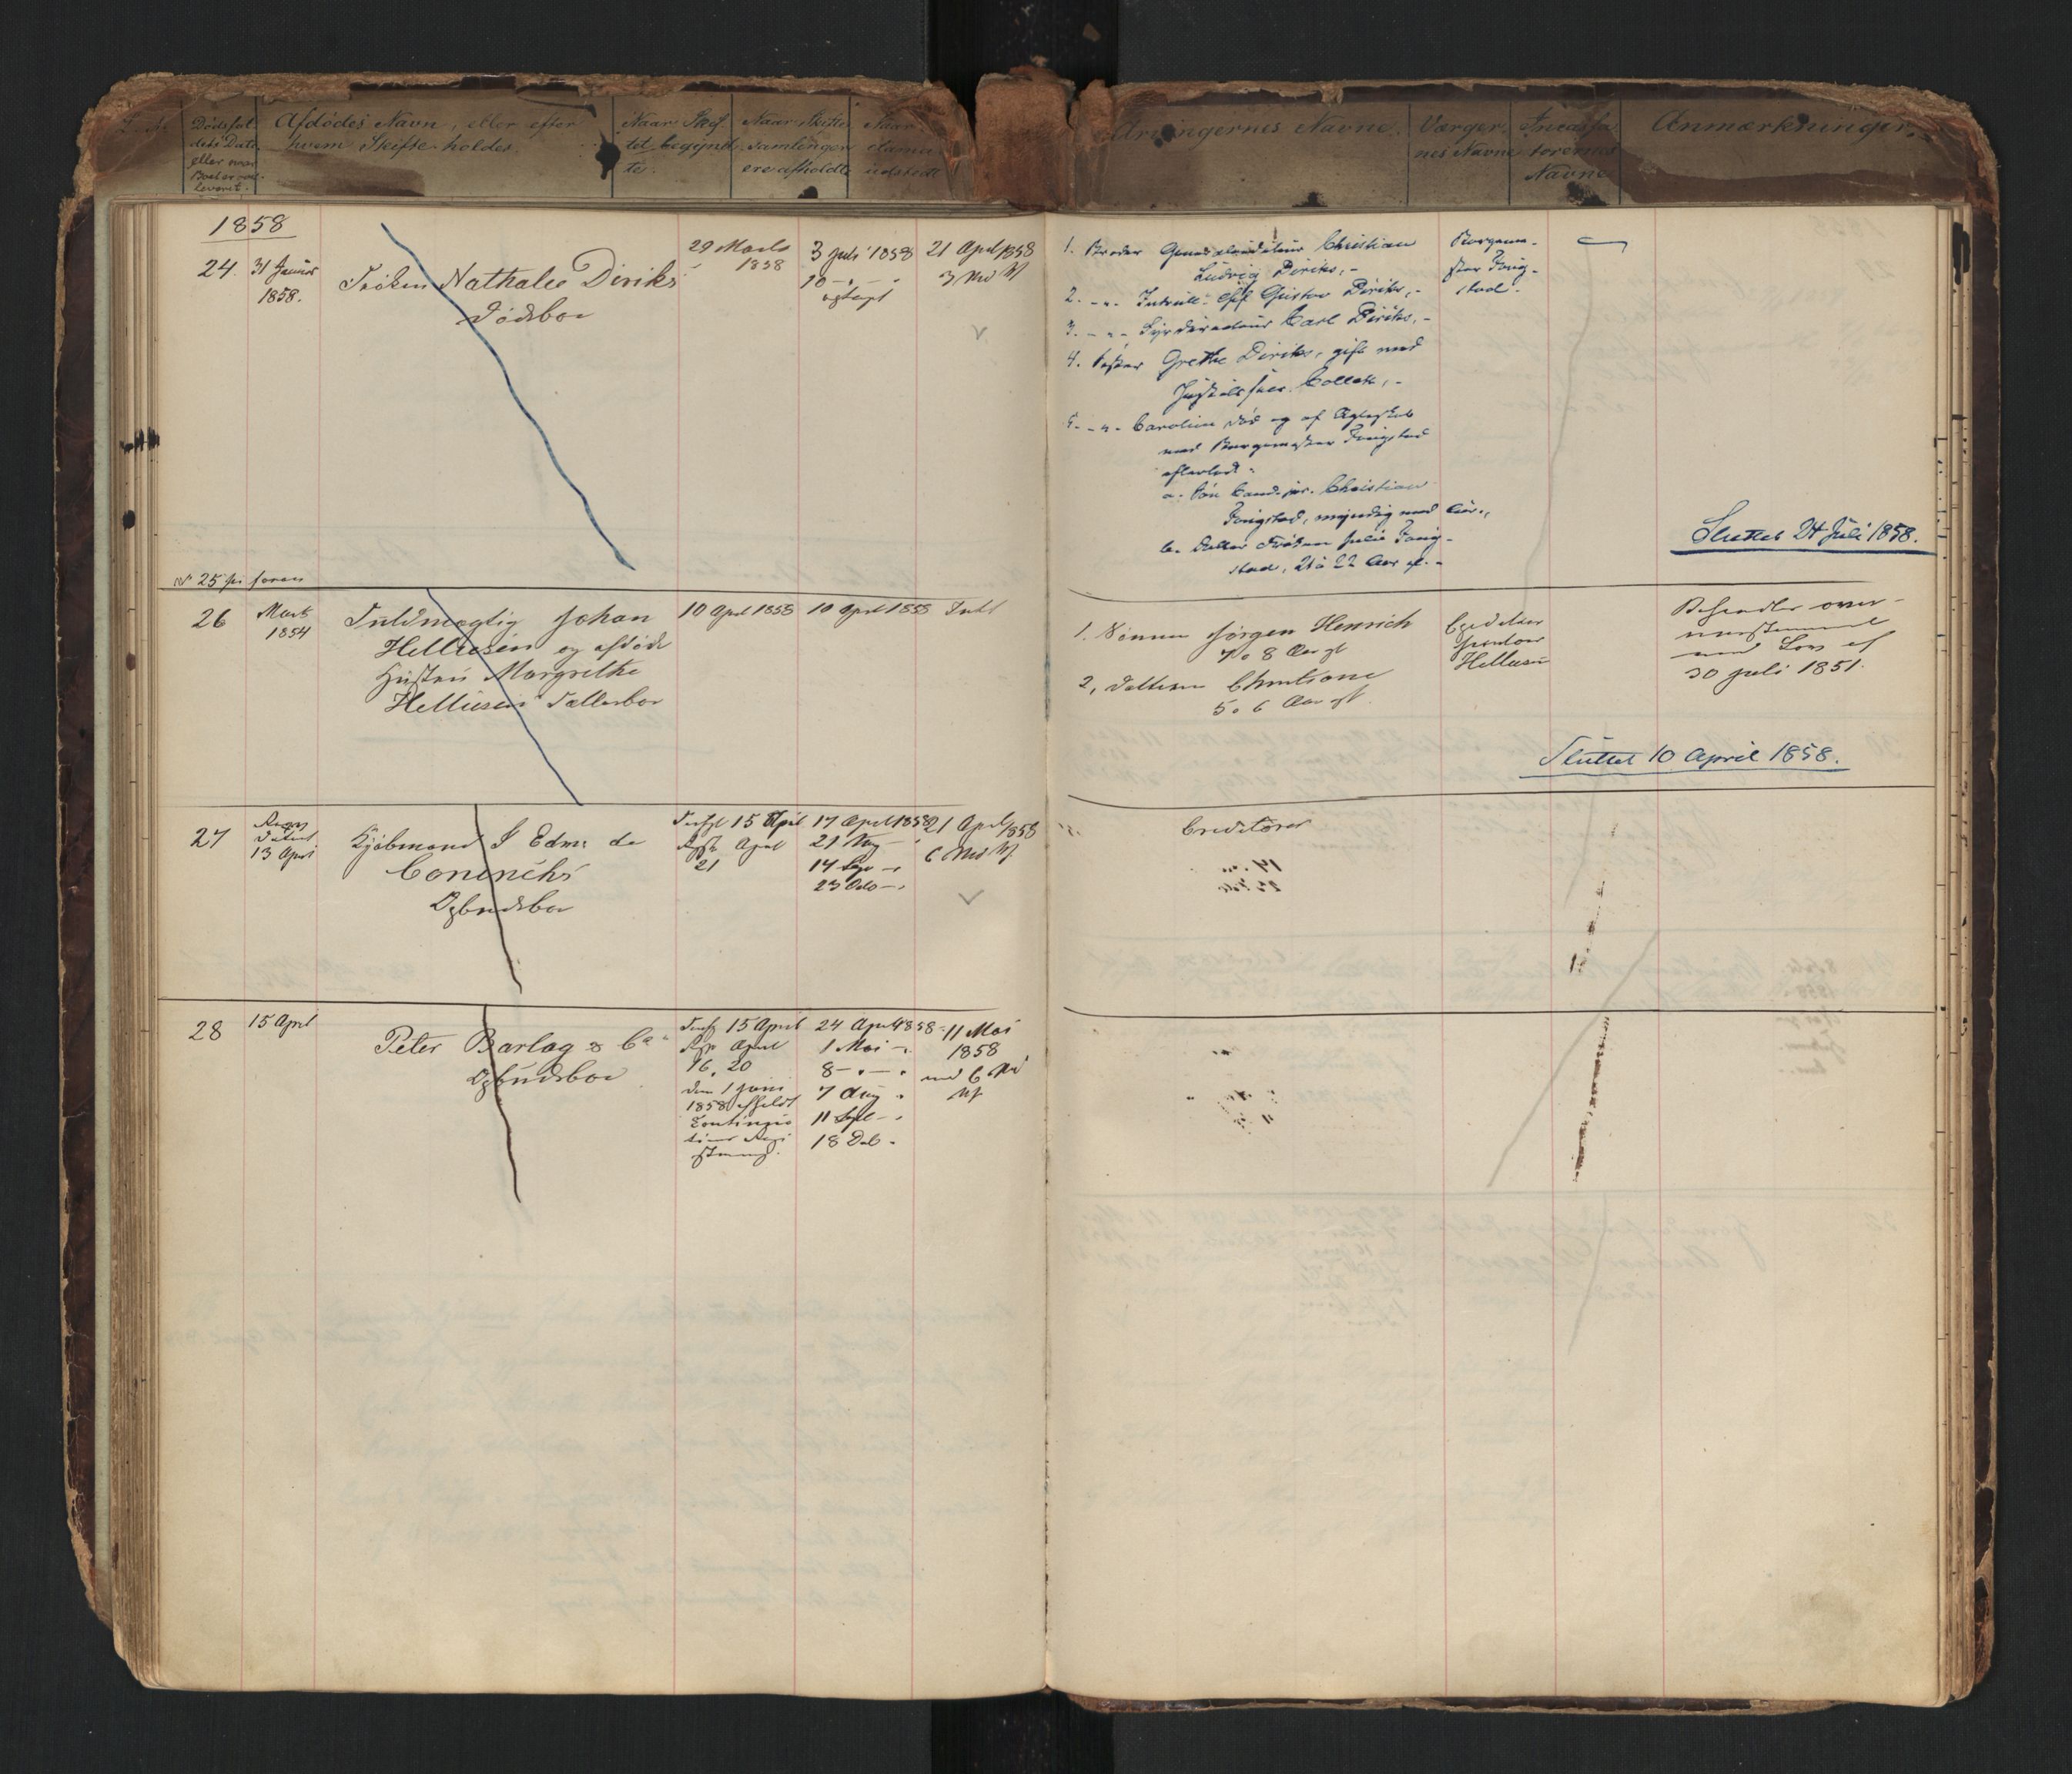 Dødsfal-
dets Dato
eller naar
Boet er ud-
leveret.
Afdødes Navn, eller efter
hvem Skifte holdes.
Naar Skif-
tet begynd-
te.
Naar Skifte
samlinger
ere afholdte
Naar
udstedt
Arvingernes Navne.
Værger-
nes Navne
Incassa-
torernes
Navne
Anmærkninger.
1858
24. 31 Januar
1858.
Frøken Nathalie Diriks
Dødsboe
29 Marts
1858
3 Juli 1858
10 - " - "
optagt
21 April 1858
3 Md
1. Broder Generalauditeur Christian
Ludvig Diriks,-
2. - " - Gustav Diriks,-
3. - " - Fyrdirecteur Carl Diriks,-
4. Søster Grethe Diriks, gift med
Collett,-
5. - " - Caroline død og af Ægteskab
med Borgemester Fougstad
efterladt:
a. Søn Cand. jur. Christian
Fougstad, myndig med Cur.,
b. Datter Frøken Julie Foug-
stad, 21 à 22 Aar gl. -
Borgeme-
ster Foug-
stad.
Sluttet 24 Juli 1858.
No 25 se foran
26 Marts
1854
Fuldmægtig Johan
Helliesen og afdøde
Hustru Margrethe
Helliesens Fællesboe
10 April 1858
10 April 1858
1. Sønnen Jørgen Henrich
7 à 8 Aar gl
2, Datteren Christiane
5 à 6 Aar gl
Helliesen
Behandlet over-
eensstemmende
med Lov af
30 Juli 1851.
Sluttet 10 April 1858.
27
13 April
Kjøbmand J Edm: de
Conincks
Opbudsboe
15 April
April
21
17 April 1858
21 Aug - "
14 - "
23 Oct - "
21 April 1858
6 Md
Creditorer
28 15 April
Peter Barlag & Co
Opbudsboe
15 April
April
16, 20
den 1 Juni
1858
24 April 1858
1 Mai - "
8 - " - "
7 Aug "
11 Sept - "
18 Dec -
11 Mai
1858
med 6 Md